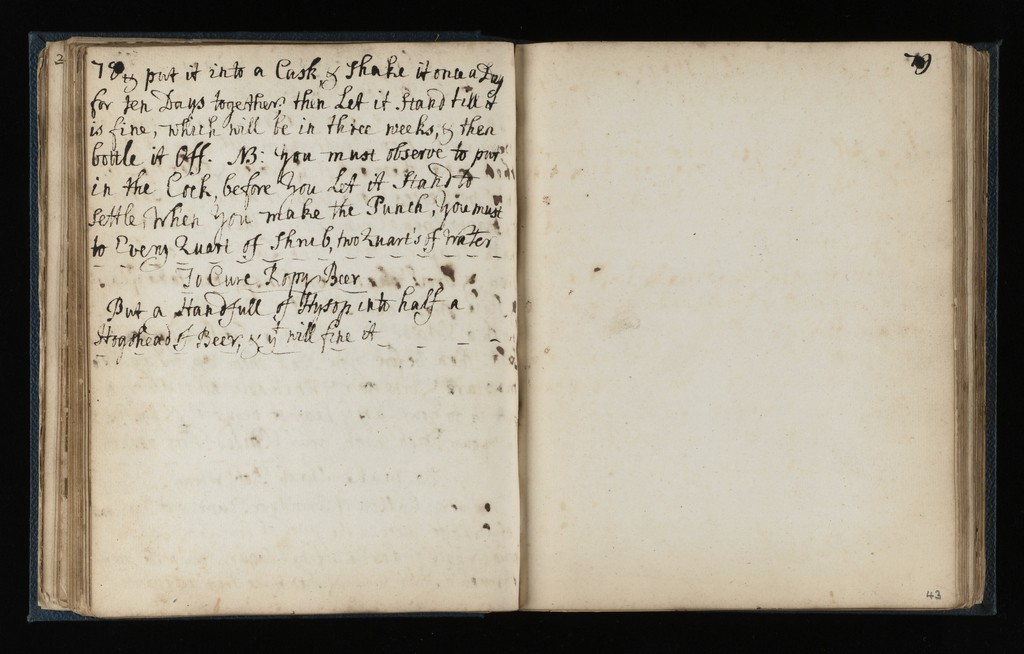 2
78 & put it into a Cask, & Shake it once a Day
for ten Days together, then Let it Stand till it
is fine, which will be in three weeks, & then
bottle it Off. NB: you must observe to put
in the Cock, before You Let it Stand to
settle, When you make the Punch, You must
to Every Quart of Shrub, two Quart's of Water
To Cure Ropy Beer
Put a Handfull of Hysop into half a
Hogshead of Beer, & it will fine it
79
43